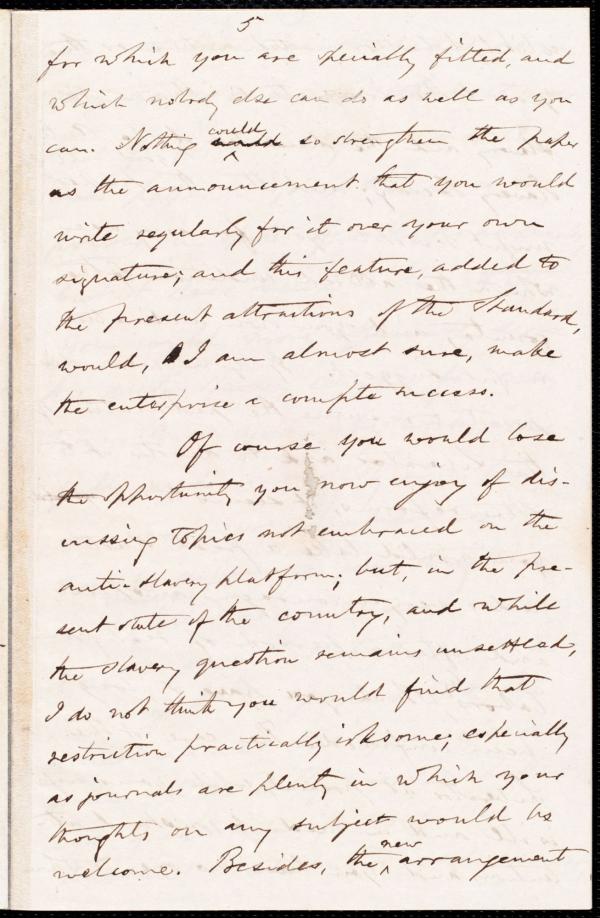 5
for which you are specially fitted, and
which nobody else can do as well as you
can. Nothing could so strengthen the paper
as the announcement that you would
write regularly for it over your own
signature; and this feature, added to
the present attractions of the Standard,
would, I am almost sure, make
the enterprise a complete success.
Of course you would lose
the opportunity you now enjoy of dis-
cussing topics not embraced on the
anti-slavery platform; but, in the pre-
sent state of the country, and while
the slavery question remains unsettled,
I do not think you would find that
restriction practically irksome, especially
as journals are plenty in which your
thoughts on any subject would be
welcome. Besides, the new arrangement